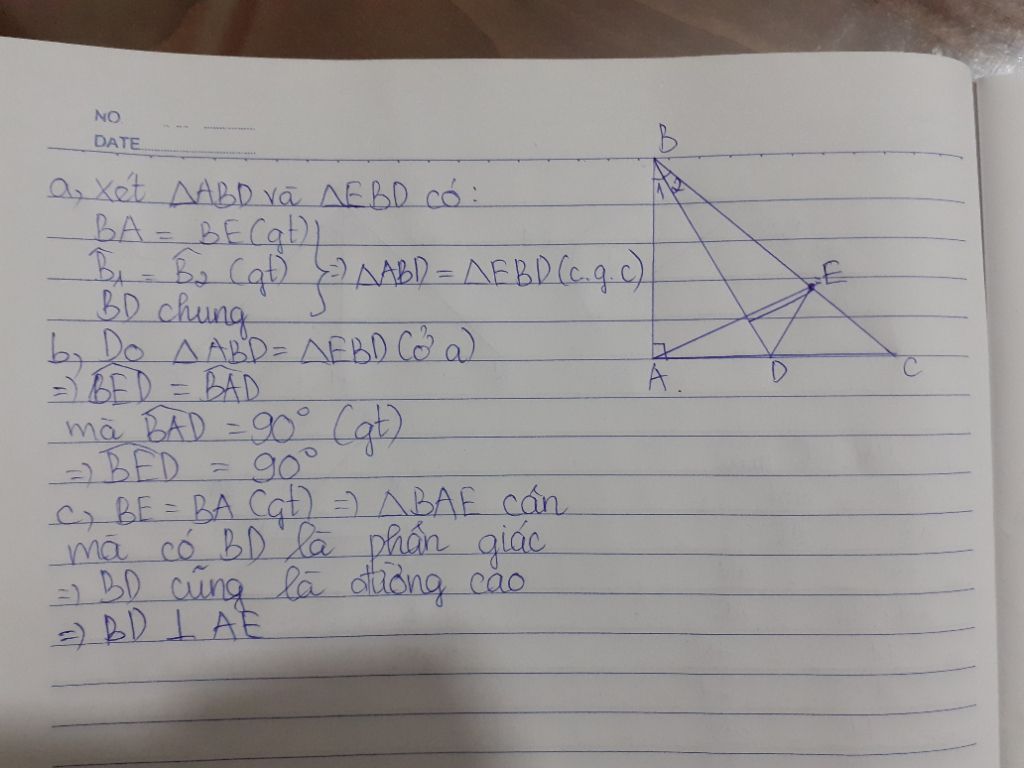 NO
DATE
a, Xét ΔABD và ΔEBD có:
BA = BE (gt)
B̂1 = B̂2 (gt) } => ΔABD = ΔEBD (c.g.c)
BD chung
b, Do ΔABD = ΔEBD (ở a)
=> B͡ED = B͡AD
mà B͡AD = 90° (gt)
=> B͡ED = 90°
c, BE = BA (gt) => ΔBAE cân
mà có BD là phân giác
=> BD cũng là đường cao
=> BD ⊥ AE
B
1 2
E
A
D
C